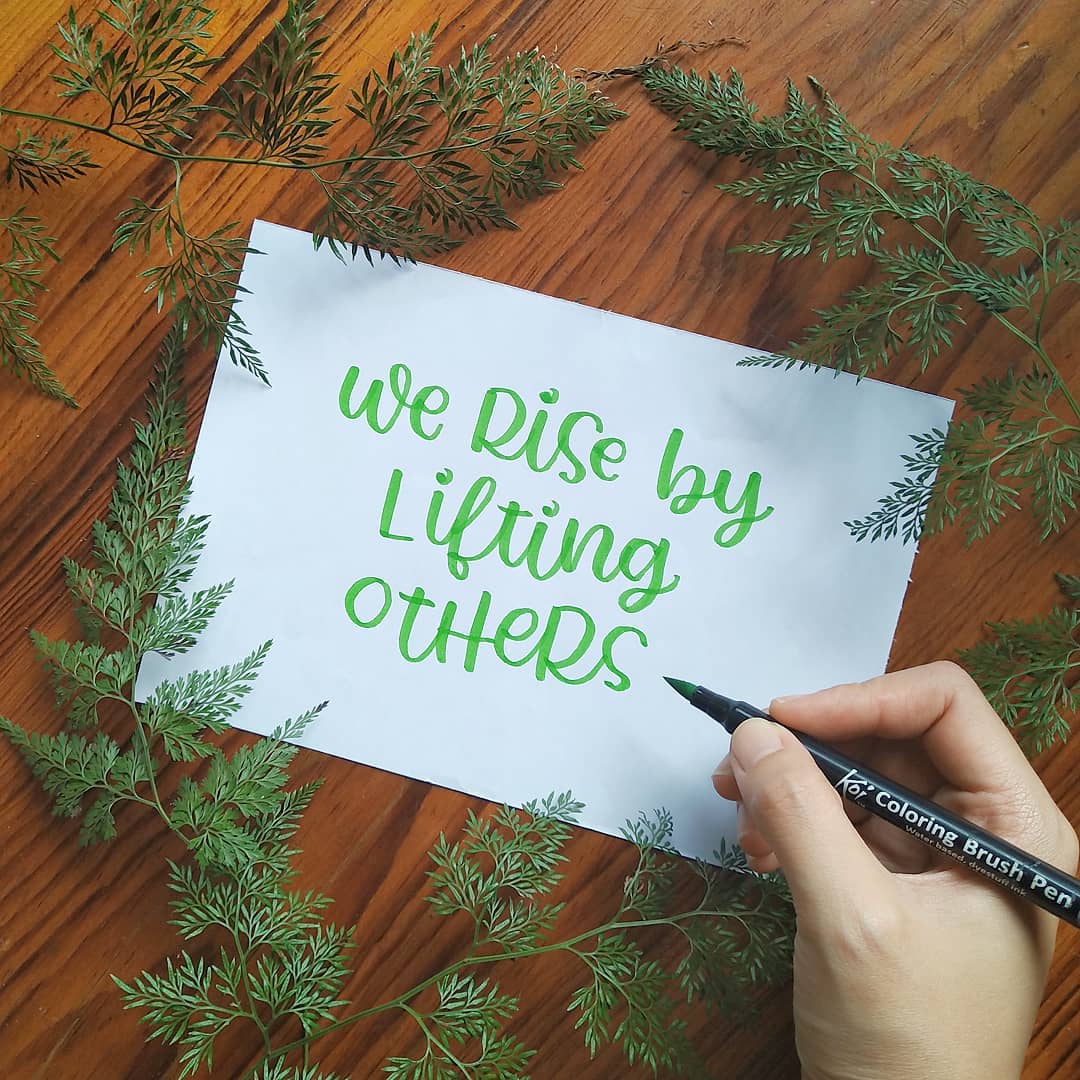 We Rise by
Lifting
OTHeRS
Koi Coloring Brush Pen
Water based, dyestuff ink